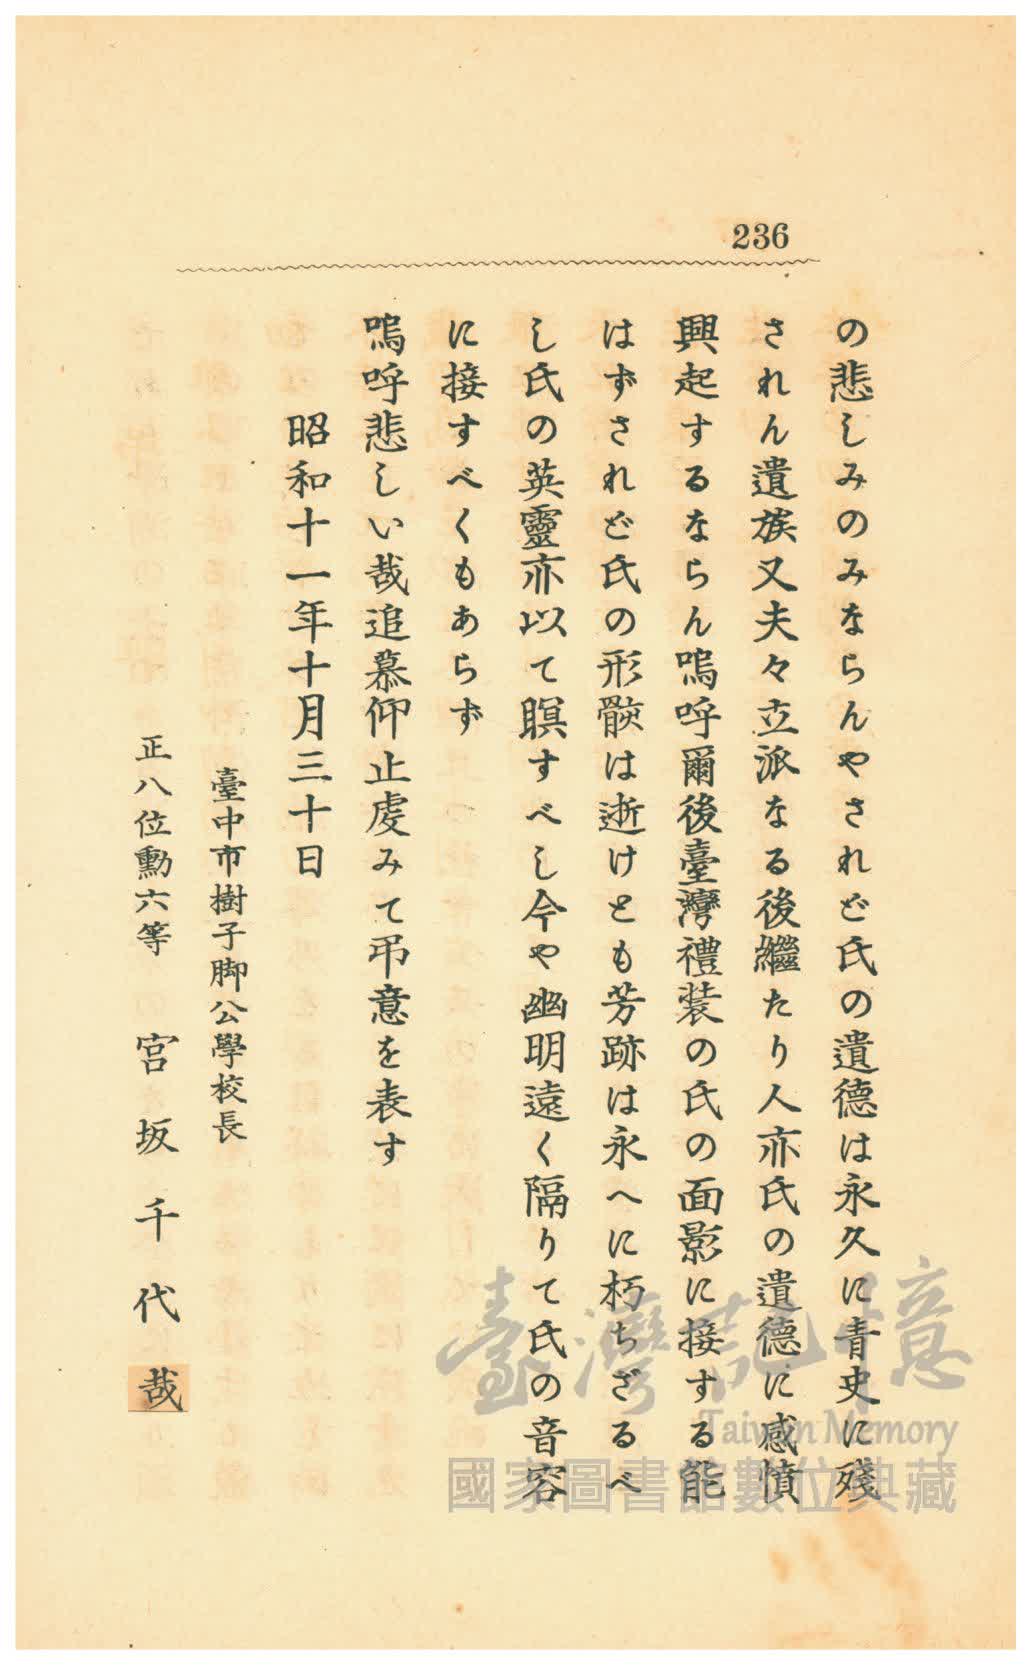 236
の悲しみのみならんやされど氏の遺德は永久に青史に殘
されん遺族又夫々立派なる後繼たり人亦氏の遺德に感憤
興起するならん嗚呼爾後臺灣禮装の氏の面影に接する能
はずされど氏の形骸は逝けとも芳跡は永へに朽ちざるべ
し氏の英靈亦以て瞑すべし今や幽明遠く隔りて氏の音容
に接すべくもあらず
嗚呼悲しい哉追慕仰止虔みて弔意を表す
昭和十一年十月三十日
臺中市樹子脚公學校長
正八位勳六等 宮坂千代哉
臺灣記憶
Taiwan Memory
國家圖書館數位典藏